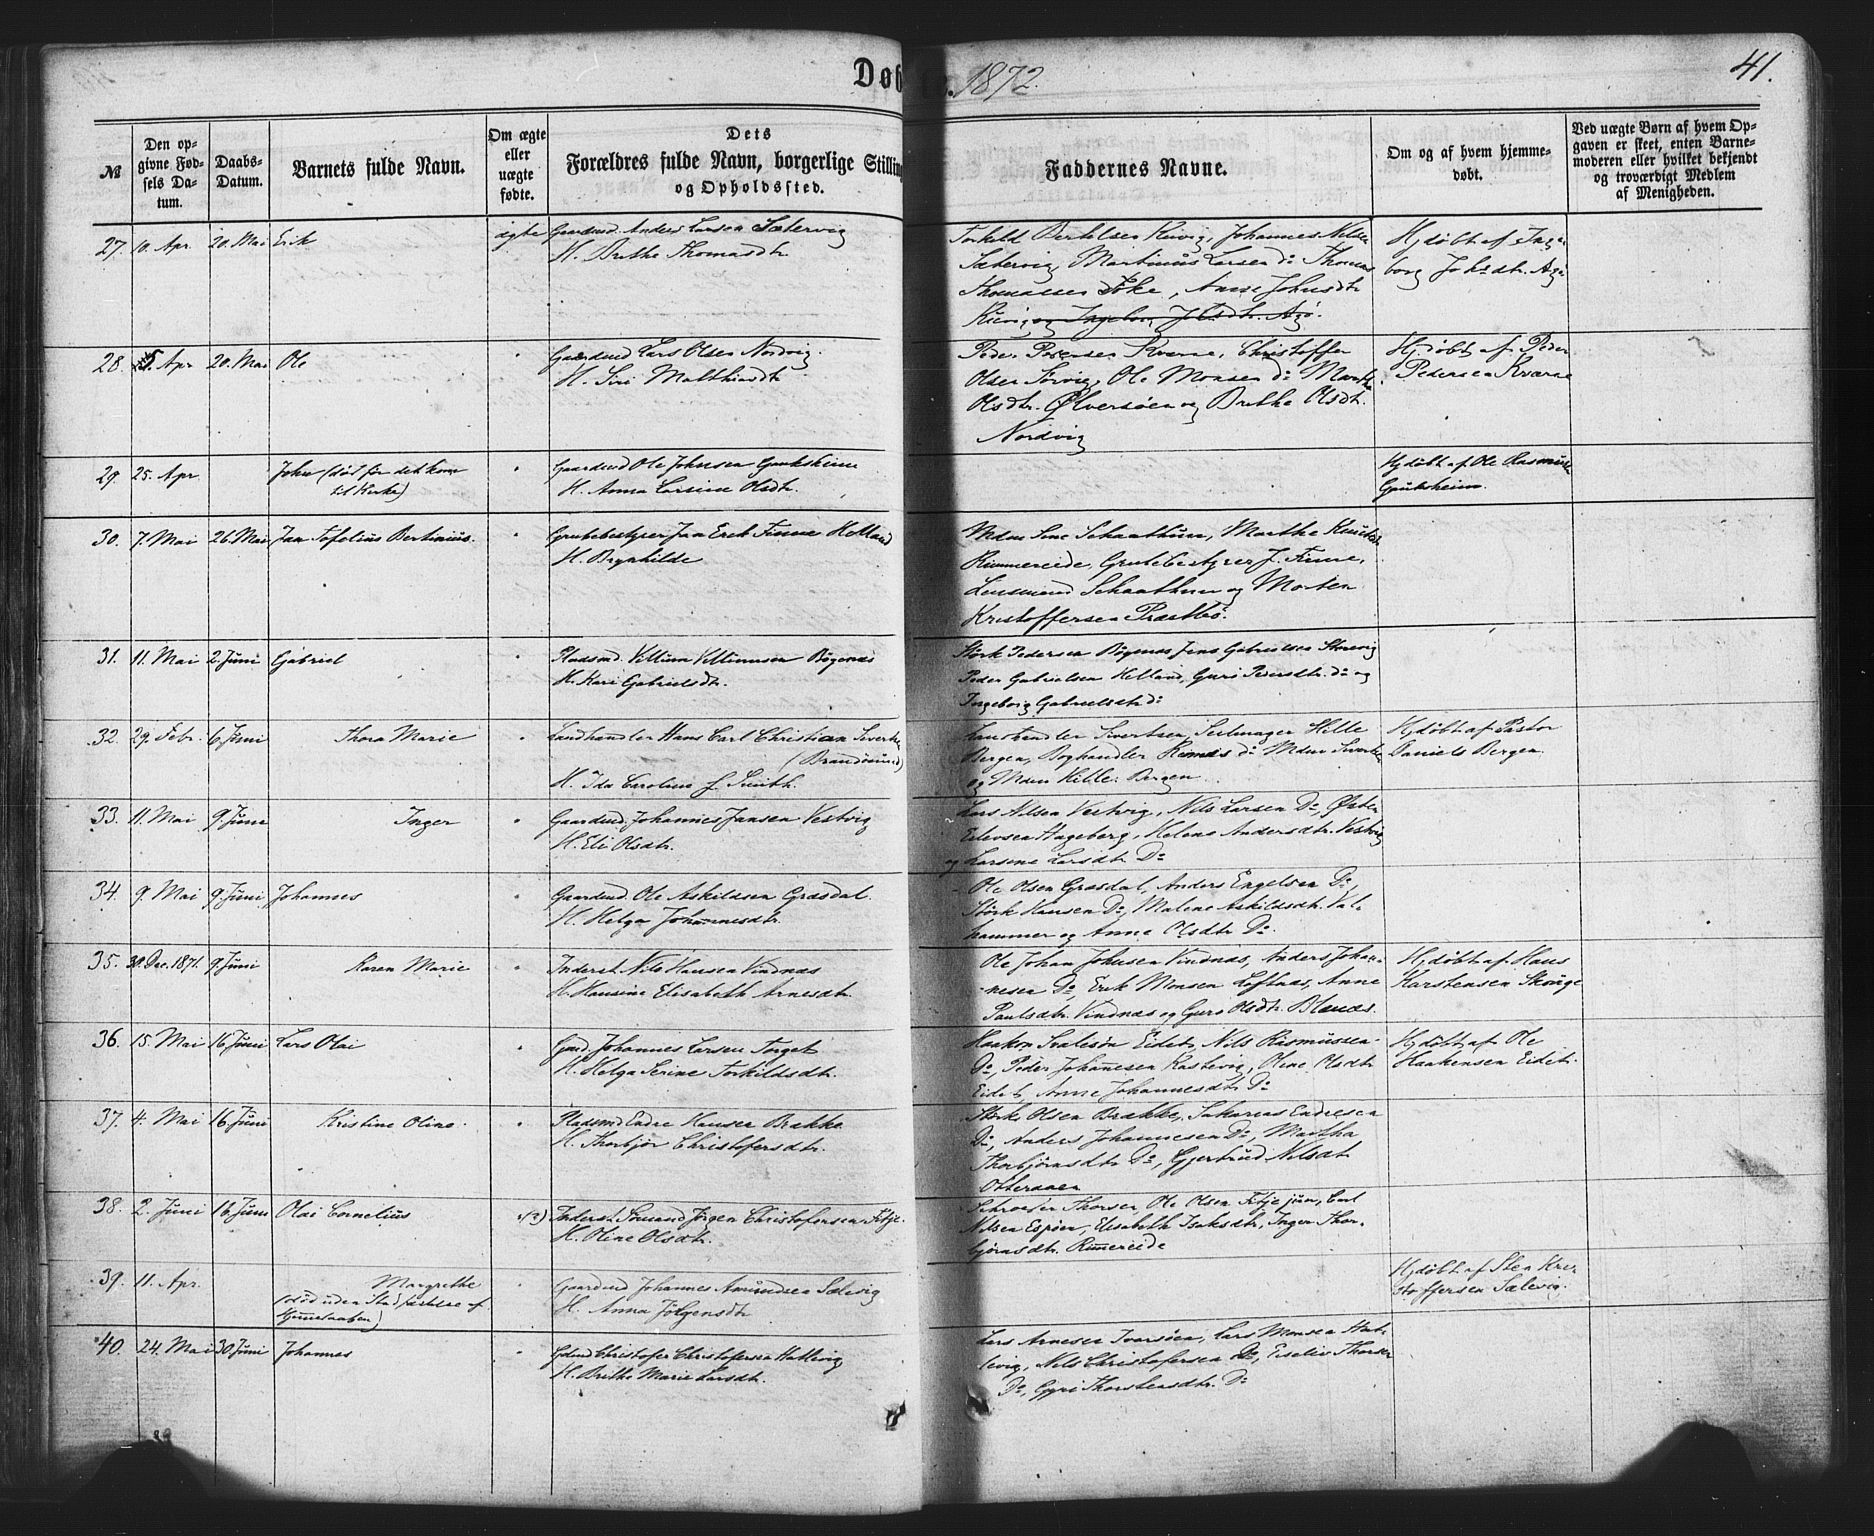 Døb 1872. 41.
№
Den opgivne Fødsels Datum.
Daabs-Datum.
Barnets fulde Navn.
Om ægte eller uægte fødte.
Dets Forældres fulde Navn, borgerlige Stilling og Opholdssted.
Faddernes Navne.
Om og af hvem hjemmedøbt.
Ved uægte Børn af hvem Opgaven er skeet, enten Barnemoderen eller hvilket bekjendt og troværdigt Medlem af Menigheden.
27. 10. Apr. 20. Mai Erik ægte Gaardmd. Anders Larsen Sætervig
H. Brithe Thomasdtr
Torkild Bertelsen Kuvig, Johannes Nilsen
Sætervig, Martinus Larsen Do Thomas
Thomassen Føke, Anne Johnsdtr
Kuvig og Ingeborg Johsdtr. Agø.
Hj.døbt af Inge-
borg Johsdtr. Agø
28. Apr 20. Mai Ole " Gaardmd Lars Olsen Nordvig.
H. Siri Matthiasdtr
Peder Pedersen Kværne, Christoffer
Olsen Sørvig, Ole Monsen Do Martha
Olsdtr. Ølversøen og Brithe Olsdtr.
Nordvig
Hj.døbt af Peder
Pedersen Kværne
29. 25. Apr John (død før det kom
til Kirke)
" Gaardmd Ole Johnsen Gouksheim
H. Anna Larsine Olsdtr.
Hj.døbt af Ole Rasmus
Gouksheim.
30. 7. Mai 26. Mai Jan Tofelius Bertinius. " Grubebestyrer Jan Erik Finne Helland
H. Brynhilde
Mdm Lene Schaathun, Marthe Knutsdtr
Rimmereide, Grubebestyrer J. Finne,
Lensmand Schaathun og Morten
Kristoffersen Præstbø.
31. 11. Mai 2. Juni Gabriel " Pladsmd. Villum Villumsen Bøgenæs
H. Kari Gabrielsdtr.
Størk Pedersen Bøgenæs Jens Gabrielsen Storevig
Peder Gabrielsen Helland, Guro Pedersdtr. Do og
Ingeborg Gabrielsdtr Do
32. 29. Febr. 6. Juni Thora Marie " Landhandler Hans Carl Christian Sivertsen
(Brandøsund)
H. Ida Caroline f. Smith.
Landhandler Sivertsen, Seilmager Hille
Bergen, Boghandler Do Mdm Sivertsen
og Mdm Hille. Bergen.
Hj.døbt af Pastor
Daniels Bergen.
33. 11. Mai 9. Juni Inger " Gaardmd. Johannes Jansen Vestvig
H. Eli Olsdtr.
Lars Nilsen Vestvig, Nils Larsen Do, Østen
Eilevsen Hageberg, Helene Andersdtr. Vestvig
og Larsine Larsdtr Do
34. 9. Mai 9. Juni Johannes " Gaardmd. Ole Askildsen Græsdal.
H. Helga Johannesdtr.
Ole Olsen Græsdal, Anders Engelsen Do,
Størk Hansen Do, Malene Askildsdtr. Val-
hammer og Anne Olsdtr Do.
35. 30. Dec. 1871. 9. Juni Karen Marie " Inderst Nils Hansen Vindnæs
H. Hansine Elisabeth Arnesdtr.
Ole Johan Johnsen Vindnæs, Anders Johan-
nesen Do, Erik Monsen Loftnæs, Anne
Paulsdtr. Vindnæs og Guro Olsdtr. Blænæs.
Hj.døbt af Hans
Karstensen Skouge
36. 15. Mai 16. Juni Lars Olai " Gmd. Johannes Larsen Torget
H. Helga Serine Torkildsdtr.
Haakon Eidet, Nils Rasmussen
Do, Peder Johanesen Rostevig, Oline Olsdtr
Eidet, Anne Johannesdtr Do
Hj.døbt af Ole
Haakensen Eidet.
37. 4. Mai 16. Juni Kristine Oline. " Pladsmd Endre Hansen Brække
H. Thorbjør Christofersdtr.
Størk Olsen Brække, Sakarias Endresen
Do, Anders Johannesen Do, Martha
Thorbjørnsdtr Do, Gjertrud Nilsdt
Otteraaen
38. 2. Juni 16. Juni Olai Cornelius "(2) Inderst Sømand Jørgen Christofersen Fitje.
H. Oline Olsdtr.
Schrøder Thorsen, Ole Olsen Fitje jun, Carl
Nilsen Espøen, Elisabeth Isaksdtr, Inger Thor-
bjørnsdtr. Rimereide
39. 11. Apr. Margrethe
(død uden Stadfæstelse af
Hjemmedaaben)
" Gaardmd Johannes Amundsen Sælevig
H. Anna Jørgensdtr
Hj.døbt af Sten Kri-
stoffersen Sælevig.
40. 24. Mai 30. Juni Johannes " Gdmd Christofer Christofersen Hallevig
H. Brithe Marie Larsdtr.
Lars Arnesen Ivarsøen, Lars Monsen Hal-
levig, Nils Christofersen Do, Eiseliv Thorsen
Do, Gyri Thorstensdtr. Do